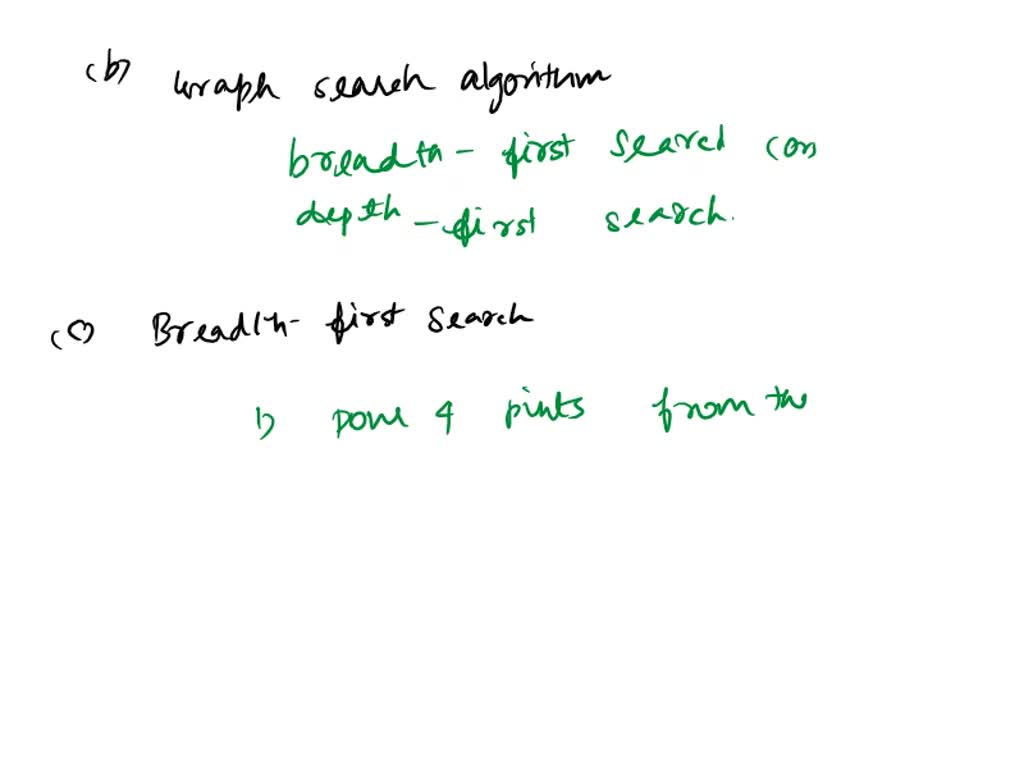 (b) Graph search algorithm
breadth - first search (or)
depth - first search.
(c) Breadth- first search
1) pour 4 pints from the